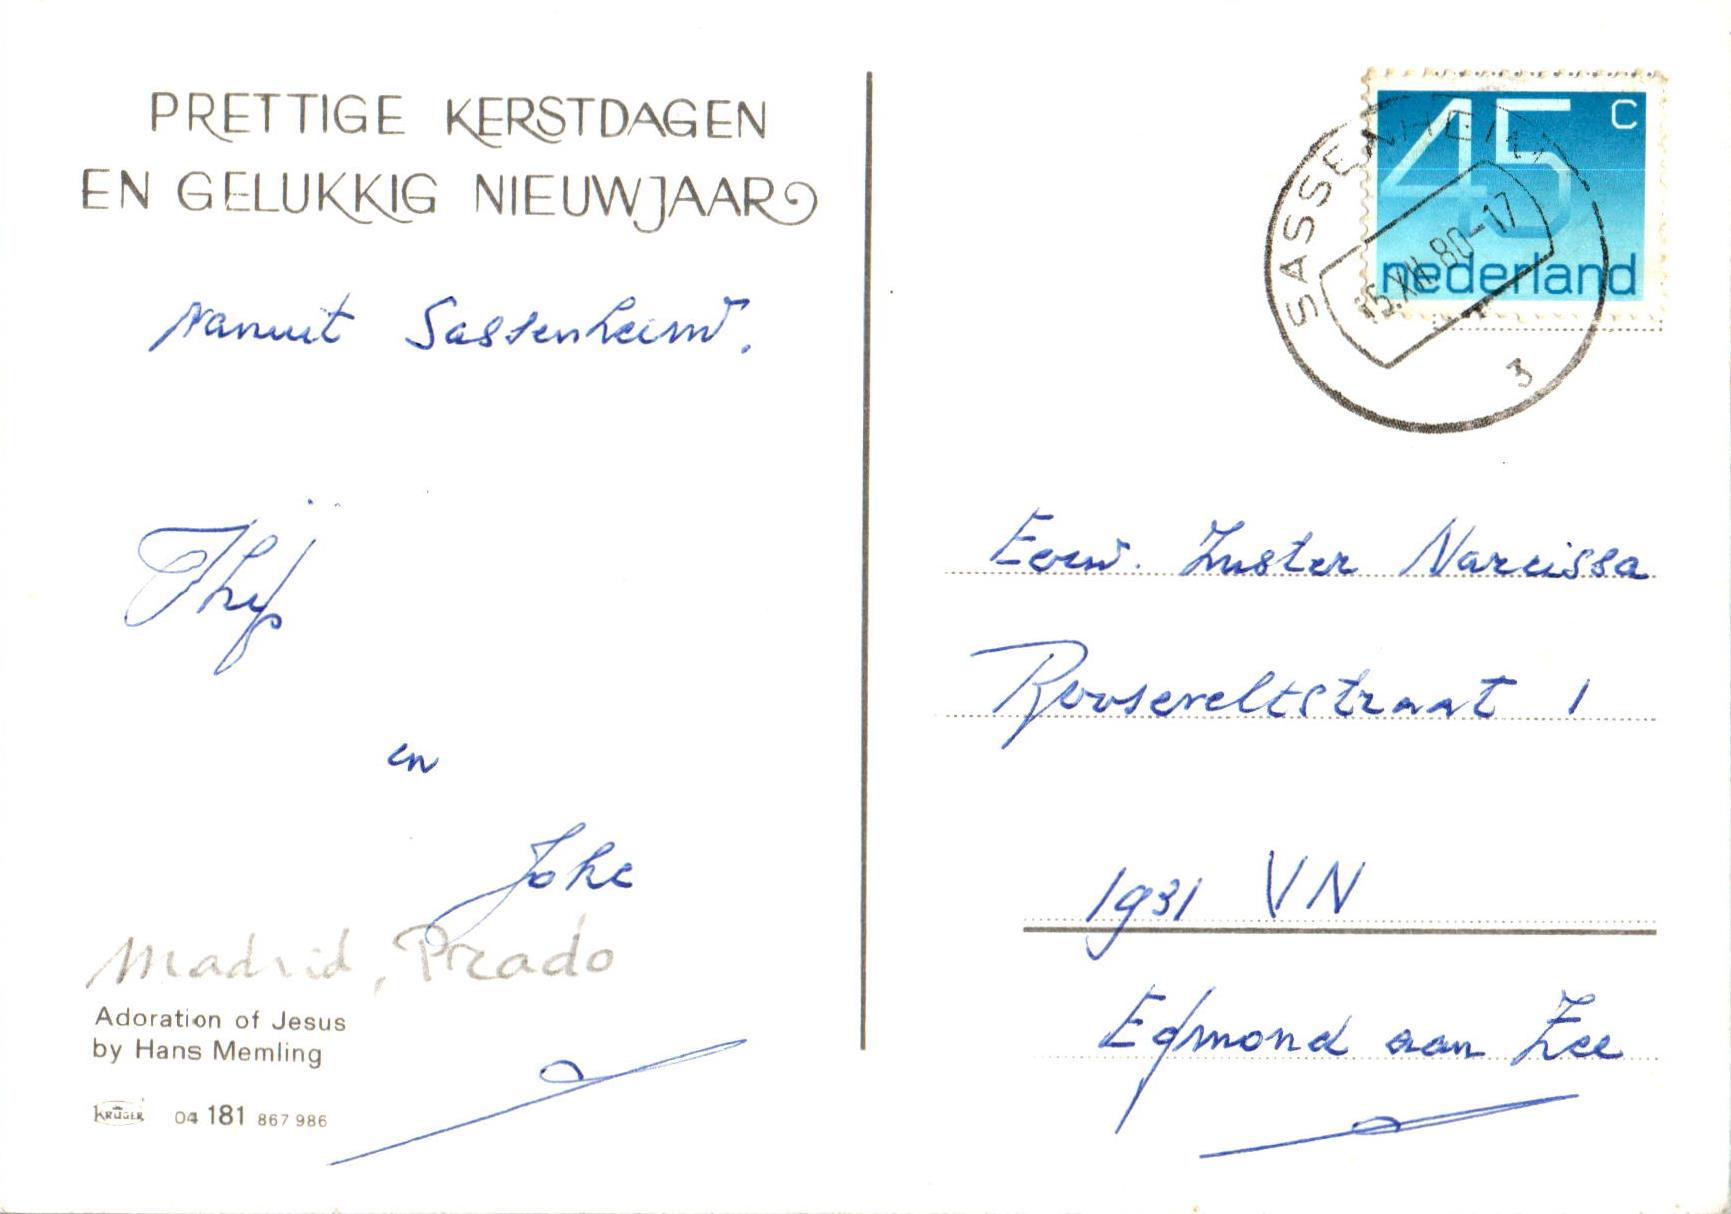 PRETTIGE KERSTDAGEN
EN GELUKKIG NIEUWJAAR
Vanuit Sassenheim.
Thijs
en
Joke
Madrid, Prado
Adoration of Jesus
by Hans Memling
KRÜGER 04 181 867 986
45 c
nederland
SASSENHEIM
15.XII.80-17
3
Eerw. Zuster Narcissa
Rooseveltstraat 1
1931 VN
Egmond aan Zee